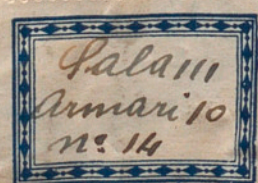 Sala III
Armari 10
nº 14